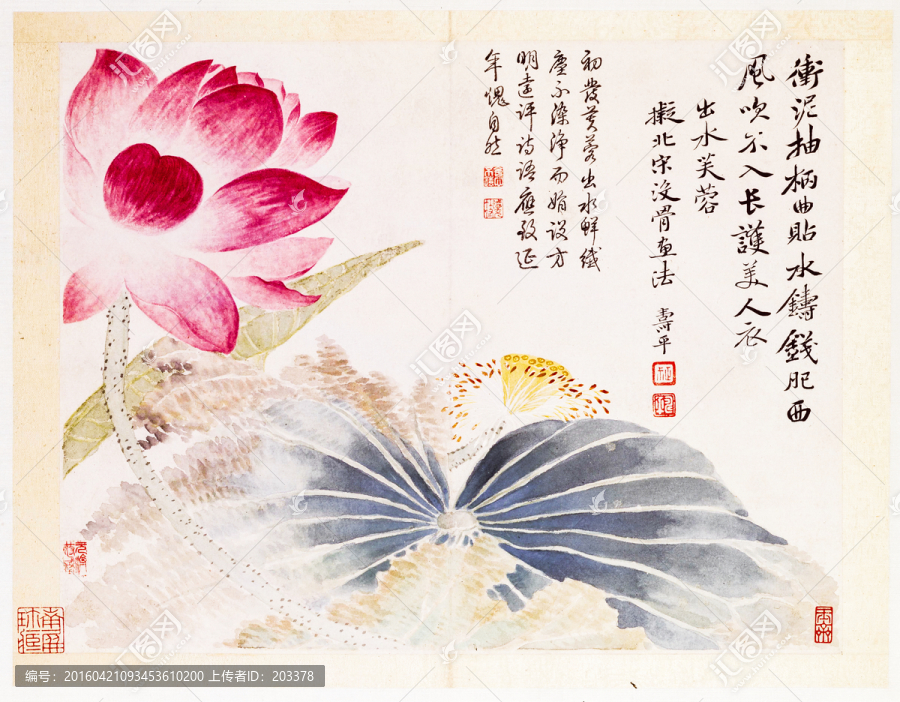 衝泥抽柄曲貼水鑄錢肥西
風吹不入長護美人衣
出水芙蓉
擬北宋没骨画法 壽平
初發芙蓉出水鮮纖
塵不染淨而娟設方
明遠评诗语應致延
年愧自然
编号：20160421093453610200 上传者ID：203378